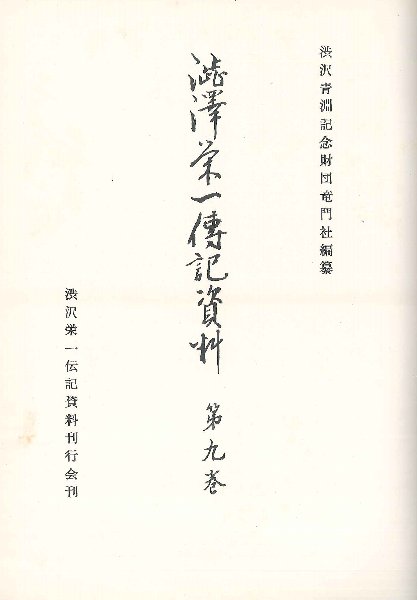 渋沢青淵記念財団竜門社編纂
澁澤栄一傳記資料 第九巻
渋沢栄一伝記資料刊行会刊